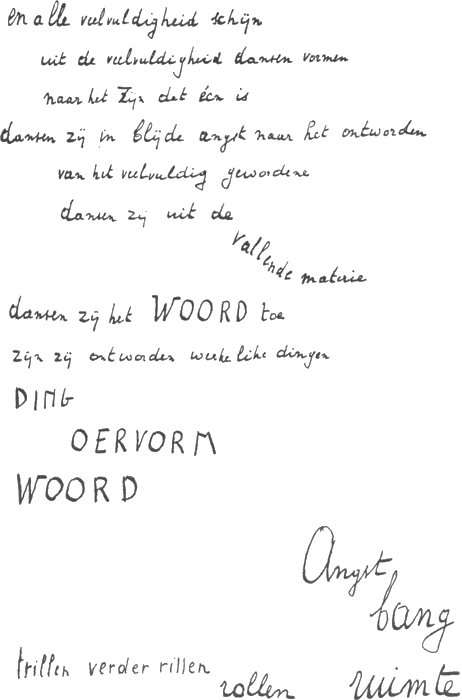 en alle veelvuldigheid schijn
uit de veelvuldigheid dansen vormen
naar het Zijn dat één is
dansen zij in blijde angst naar het ontworden
van het veelvuldig gewordene
dansen zij uit de
vallende materie
dansen zij het WOORD toe
zijn zij ontworden werkelike dingen
DING
OERVORM
WOORD
Angst
bang
trillen verder rillen
rollen ruimte